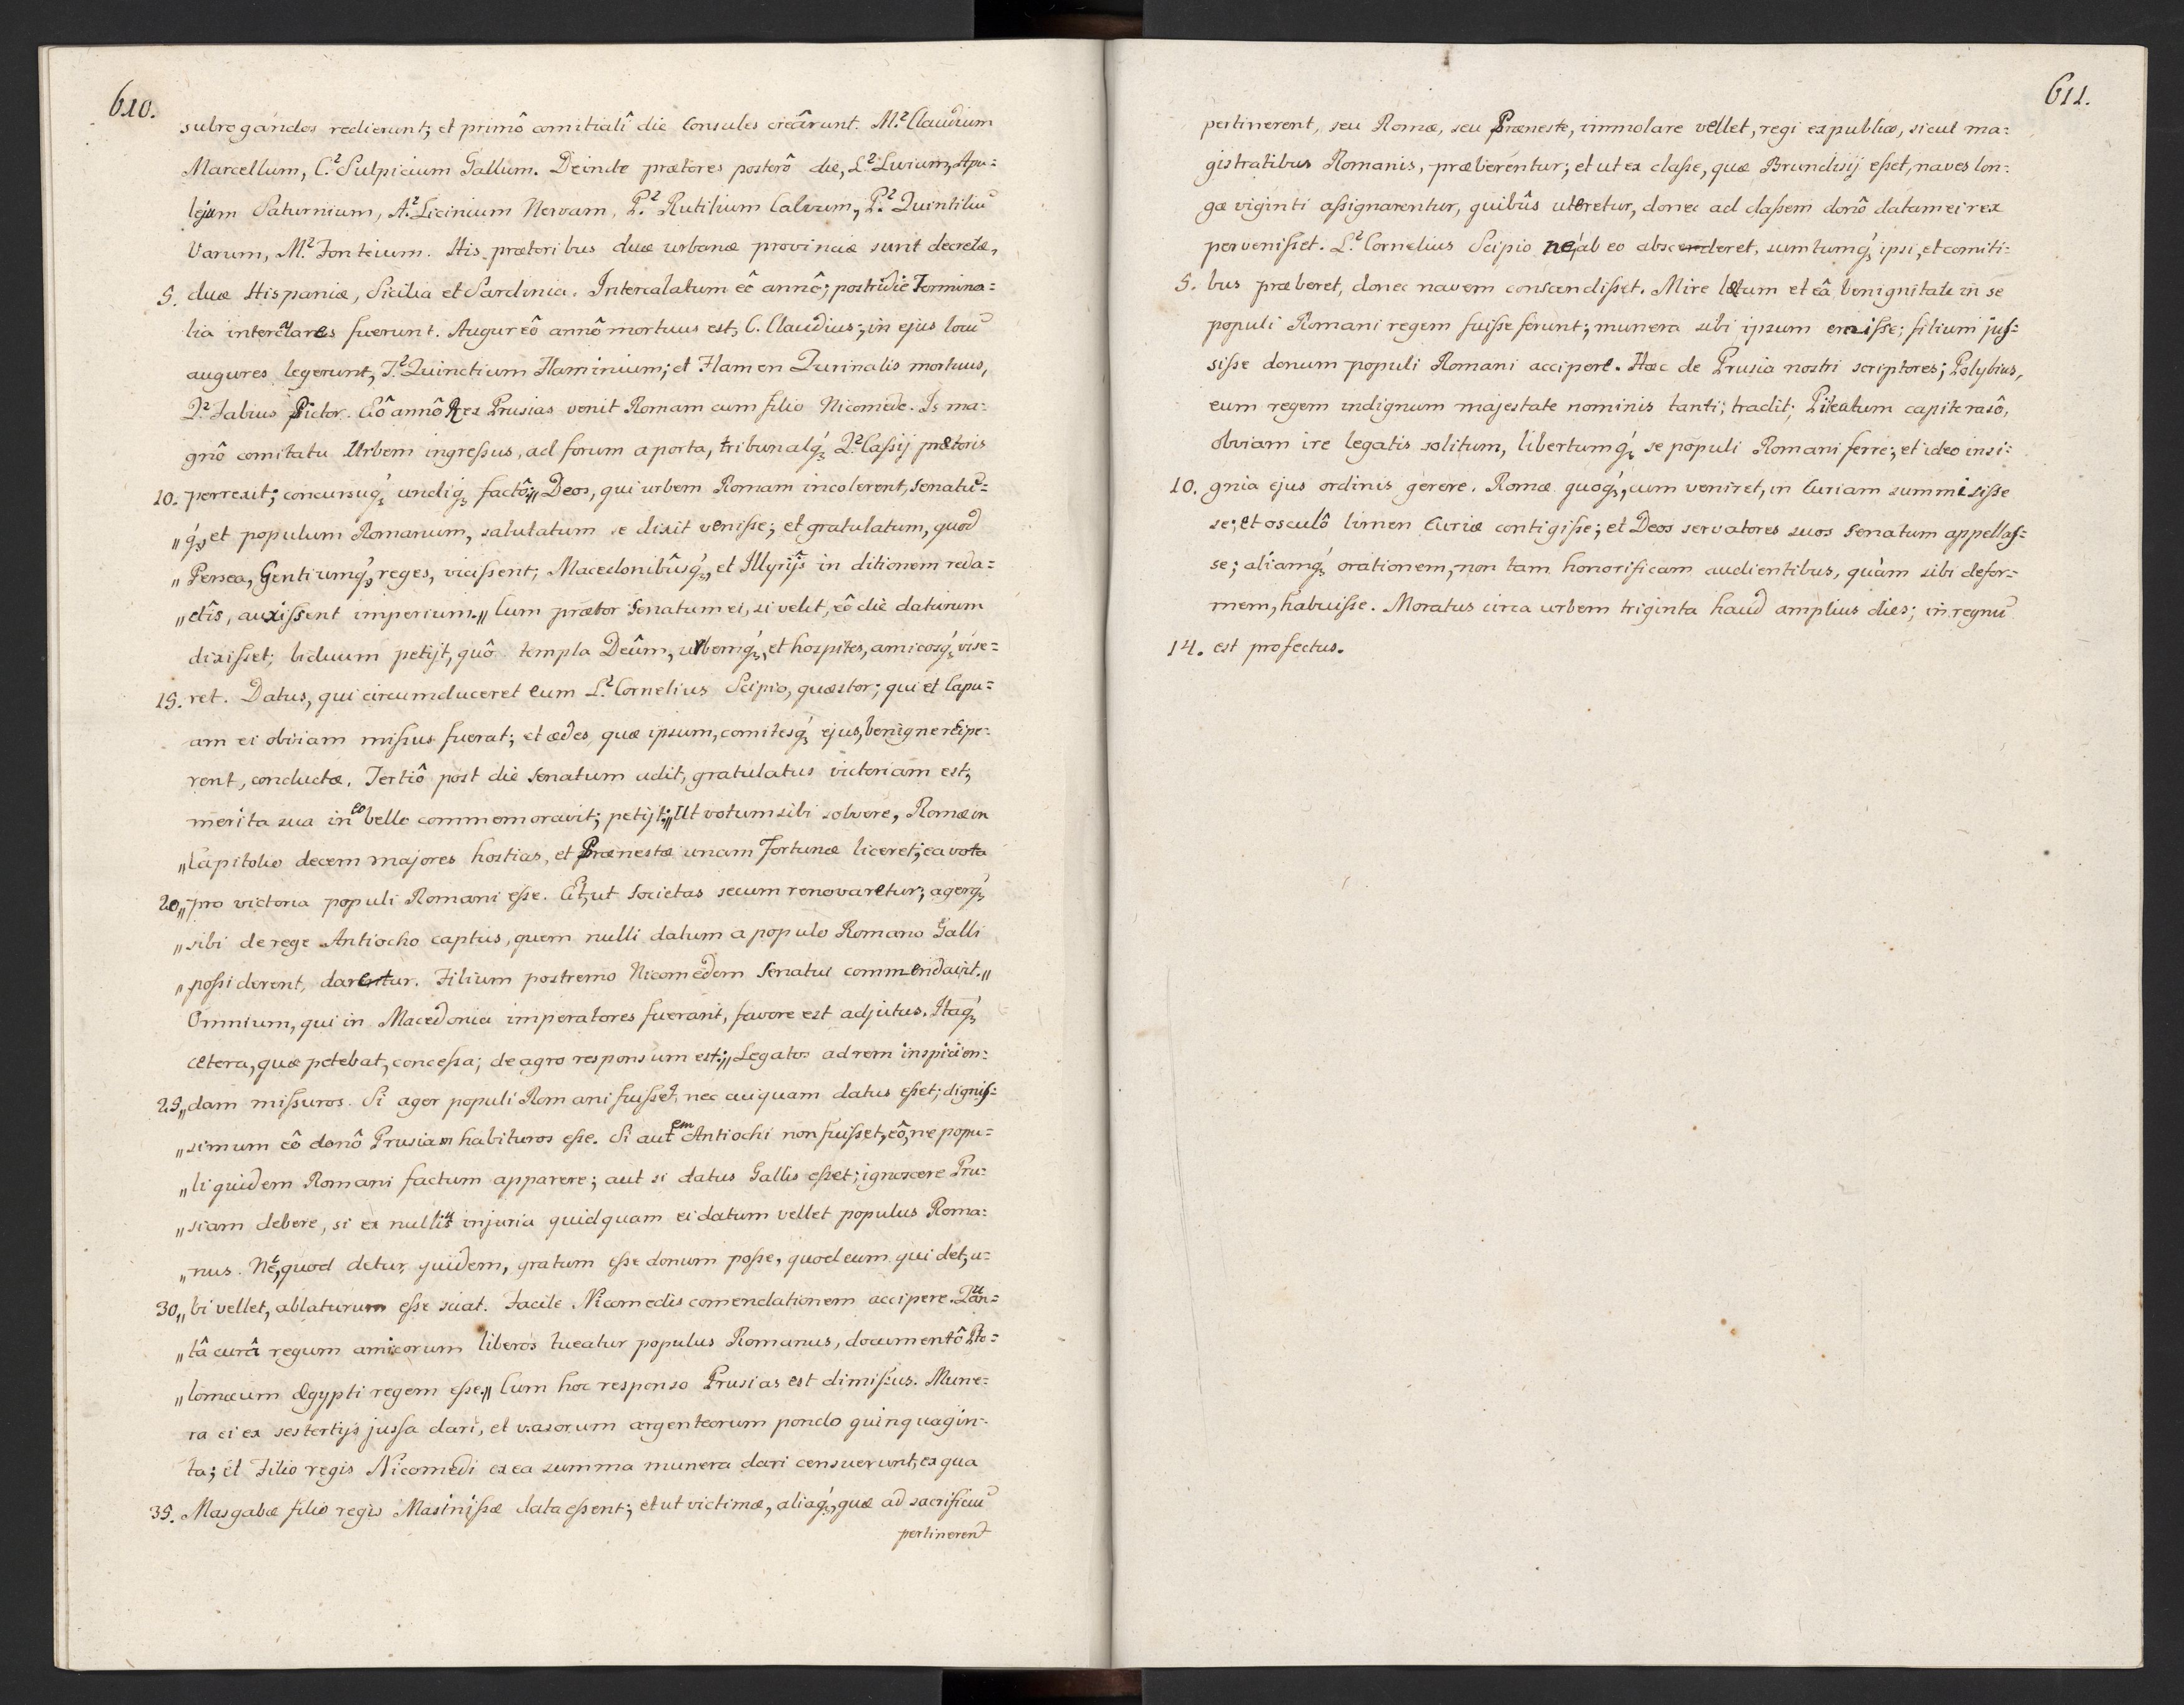 610.
subrogandos redierunt; et primô comitialî die Consules creârunt. M.² Claudium
Marcellum, C.² Sulpicium Gallum. Deinde prætores posterô die, L.² Livium, Apu=
lejum Saturnium, A.² Licinium Nervam, P.² Rutilium Calvum, P.² Quintiliũ
Varum, M.² Fonteium. His prætoribus duæ urbanæ provinciæ sunt decretæ,
5. duæ Hispaniæ, Sicilia et Sardinia. Intercalatum eô annô; postridie Termina=
lia intercalares fuerunt. Augur eô annô mortuus est, C. Claudius; in ejus locũ
augures legerunt, T.² Quinctium Flaminium; et Flamen Quirinalis mortuus,
Q.² Fabius Pictor. Eô annô Rex Prusias venit Romam cum filio Nicomede. Is ma=
gnô comitatu Urbem ingressus, ad forum a porta, tribunalq́ꝫ Q.² Cassij prætoris
10. perrexit; concursuq́ꝫ undiq́ꝫ factô; „Deos, qui urbem Romam incolerent, senatũ=
„q́ꝫ et populum Romanum, salutatum se dixit venisse; et gratulatum, quod
„Persea, Gentiumq́ꝫ reges, vicissent; Macedonibûsq́ꝫ, et Illyrijs in ditionem reda=
„ctîs, auxissent imperium.„ Cum prætor Senatum ei, si velit, eô die daturum
dixisset; biduum petijt, quô templa Deûm, urbemq́ꝫ, et hospites, amicosq́ꝫ vise=
15. ret. Datus, qui circumduceret eum L.² Cornelius Scipio, quæstor; qui et Capu=
am ei obviam missus fuerat; et ædes, quæ ipsum, comitesq́ꝫ ejus, benigne recipe=
rent, conductæ. Tertiô post die Senatum adit, gratulatus victoriam est;
merita sua in eo bello commemoravit; petijt; „Ut votum sibi solvere, Romæ in
„Capitolio decem majores hostias, et Prænestæ unam Fortunæ liceret; ea vota
20. „pro victoria populi Romani esse. Et, ut societas secum renovaretur; agerq́ꝫ
„sibi de rege Antiocho captus, quem nulli datum a populo Romano Galli
„possiderent, daretur. Filium postremo Nicomedem Senatui commendavit.„
Omnium, qui in Macedonia imperatores fuerant, favore est adjutus. Itaq́ꝫ
cetera, quæ petebat, concessa; de agro responsum est; „Legatos ad rem inspicien=
25. „dam missuros. Si ager populi Romani fuisset, nec cuiquam datus esset; dignis=
„simum eô donô Prusiam habituros esse. Si autem Antiochi non fuisset, eô, ne popu=
„li quidem Romani factum apparere; aut si datus Gallis esset; ignoscere Pru=
„siam debere, si ex nullius injuria quidquam ei datum vellet populus Roma=
„nus. Ne, quod detur, quidem, gratum esse donum posse, quod eum qui det, u=
30. „bi vellet, ablaturum esse sciat. Facile Nicomedis comendationem accipere. Tan=
„tâ curâ regum amicorum liberos tueatur populus Romanus, documentô Pto=
„lomæum Ægypti regem esse.„ Cum hoc responso Prusias est dimissus. Mune=
ra ei ex sestertijs jussa dari, et vasorum argenteorum pondo quinquagin=
ta; et Filio regis Nicomedi ex ea summa munera dari censuerunt, ex qua
35. Masgabæ filio regis Masinissæ data essent; et ut victimæ, aliaq́ꝫ, quæ ad sacrificiũ
pertinerent
611.
pertinerent, seu Romæ, seu Præneste, immolare vellet, regi ex publico, sicut ma=
gistratibus Romanis, præberentur; et ut ex classe, quæ Brundisij esset, naves lon=
gæ viginti assignarentur, quibûs uteretur, donec ad classem donô datam ei rex
pervenisset. L.² Cornelius Scipio ne, ab eo abscederet, sumtumq́ꝫ ipsi, et comiti=
5. bus præberet, donec navem conscendisset. Mire lætum et eâ benignitate in se
populi Romani regem fuisse ferunt; munera sibi ipsum emisse; filium jus=
sisse donum populi Romani accipere. Hæc de Prusia nostri scriptores; Polybius,
eum regem indignum majestate nominis tanti, tradit; Pileatum capite rasô,
obviam ire legatis solitum, libertumq́ꝫ se populi Romani ferre; et ideo insi=
10. gnia ejus ordinis gerere. Romæ quoq́ꝫ, cum veniret, in Curiam summisisse
se; et osculô limen Curiæ contigisse; et Deos servatores suos Senatum appellas=
se; aliamq́ꝫ orationem, non tam honorificam audientibus, quàm sibi defor=
mem, habuisse. Moratus circa urbem triginta haud amplius dies; in regnũ
14. est profectus.